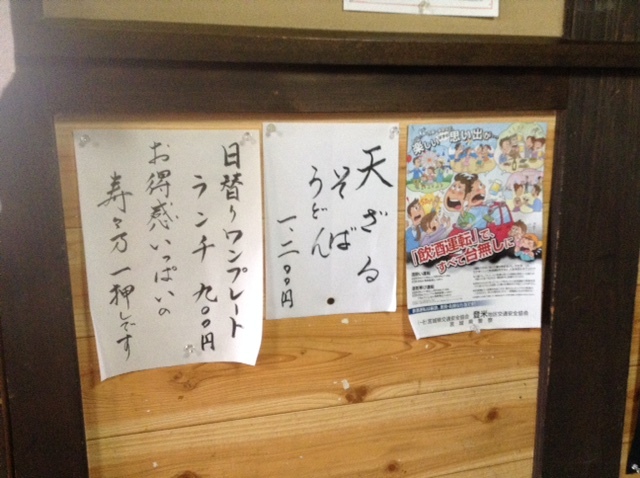 日替りワンプレート
ランチ 九〇〇円
お得感いっぱいの
寿々乃 一押しです
天ざる
そば
うどん
一、二〇〇円
楽しい 思い出が…
「飲酒運転」で、
すべて台無しに
登米地区交通安全協会